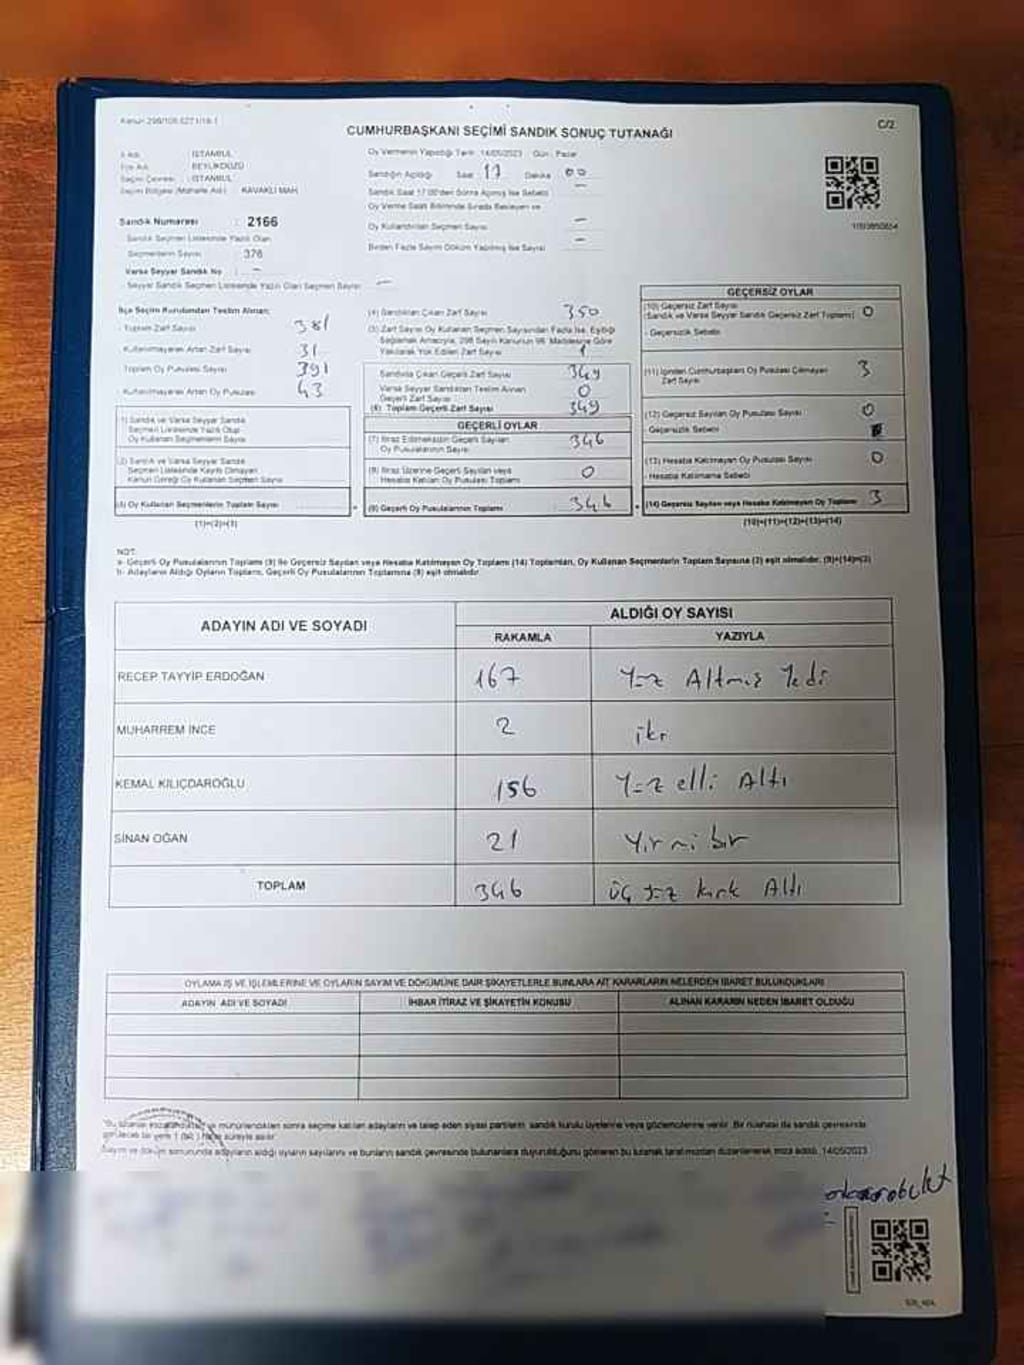 Kanun 298/105,6271/18-1
C/2
CUMHURBAŞKANI SEÇİMİ SANDIK SONUÇ TUTANAĞI
İl Adı : İSTANBUL
İlçe Adı : BEYLİKDÜZÜ
Seçim Çevresi : İSTANBUL
Seçim Bölgesi (Mahalle Adı) : KAVAKLI MAH.
Sandık Numarası : 2166
Sandık Seçmen Listesinde Yazılı Olan
Seçmenlerin Sayısı 376
Varsa Seyyar Sandık No : -
Seyyar Sandık Seçmen Listesinde Yazılı Olan Seçmen Sayısı -
Oy Vermenin Yapıldığı Tarih : 14/05/2023 Gün : Pazar
Sandığın Açıldığı Saat 17 Dakika 00
Sandık Saat 17.00'den Sonra Açılmış İse Sebebi -
Oy Verme Saati Bitiminde Sırada Bekleyen ve
Oy Kullandırılan Seçmen Sayısı -
Birden Fazla Sayım Döküm Yapılmış İse Sayısı -
İlçe Seçim Kurulundan Teslim Alınan;
- Toplam Zarf Sayısı 381
- Kullanılmayarak Artan Zarf Sayısı 31
Toplam Oy Pusulası Sayısı 391
- Kullanılmayarak Artan Oy Pusulası 43
(1) Sandık ve Varsa Seyyar Sandık
Seçmen Listesinde Yazılı Olup
Oy Kullanan Seçmenlerin Sayısı
(2) Sandık ve Varsa Seyyar Sandık
Seçmen Listesinde Kayıtlı Olmayan
Kanun Gereği Oy Kullanan Seçmen Sayısı
(3) Oy Kullanan Seçmenlerin Toplam Sayısı
(1)+(2)=(3)
(4) Sandıktan Çıkan Zarf Sayısı 350
(5) Zarf Sayısı Oy Kullanan Seçmen Sayısından Fazla İse, Eşitliği
Sağlamak Amacıyla, 298 Sayılı Kanunun 98. Maddesine Göre
Yakılarak Yok Edilen Zarf Sayısı 1
Sandıkta Çıkan Geçerli Zarf Sayısı 349
Varsa Seyyar Sandıktan Teslim Alınan
Geçerli Zarf Sayısı 0
(6) Toplam Geçerli Zarf Sayısı 349
GEÇERLİ OYLAR
(7) İtiraz Edilmeksizin Geçerli Sayılan
Oy Pusulasının Sayısı 346
(8) İtiraz Üzerine Geçerli Sayılan veya
Hesaba Katılan Oy Pusulası Toplamı 0
(9) Geçerli Oy Pusulalarının Toplamı 346
GEÇERSİZ OYLAR
(10) Geçersiz Zarf Sayısı
(Sandık ve Varsa Seyyar Sandık Geçersiz Zarf Toplamı) 0
- Geçersizlik Sebebi
(11) İçinden Cumhurbaşkanı Oy Pusulası Çıkmayan
Zarf Sayısı 3
(12) Geçersiz Sayılan Oy Pusulası Sayısı 0
- Geçersizlik Sebebi
(13) Hesaba Katılmayan Oy Pusulası Sayısı 0
- Hesaba Katılmama Sebebi
(14) Geçersiz Sayılan veya Hesaba Katılmayan Oy Toplamı 3
(10)+(11)+(12)+(13)=(14)
NOT:
a- Geçerli Oy Pusulalarının Toplamı (9) ile Geçersiz Sayılan veya Hesaba Katılmayan Oy Toplamı (14) Toplamları, Oy Kullanan Seçmenlerin Toplam Sayısına (3) eşit olmalıdır. (9)+(14)=(3)
b- Adayların Aldığı Oyların Toplamı, Geçerli Oy Pusulalarının Toplamına (9) eşit olmalıdır.
ADAYIN ADI VE SOYADI
ALDIĞI OY SAYISI
RAKAMLA YAZIYLA
RECEP TAYYİP ERDOĞAN 167 Yüz Altmış Yedi
MUHARREM İNCE 2 iki
KEMAL KILIÇDAROĞLU 156 Yüz elli Altı
SİNAN OĞAN 21 Yirmi bir
TOPLAM 346 üç yüz kırk Altı
OYLAMA İŞ VE İŞLEMLERİNE VE OYLARIN SAYIM VE DÖKÜMÜNE DAİR ŞİKAYETLERLE BUNLARA AİT KARARLARIN NELERDEN İBARET BULUNDUKLARI
ADAYIN ADI VE SOYADI İHBAR İTİRAZ VE ŞİKAYETİN KONUSU ALINAN KARARIN NEDEN İBARET OLDUĞU
sonra seçime katılan adayların ve talep eden siyasi partilerin, sandık kurulu üyelerine veya gözlemcilerine verilir. Bir nüshası da sandık çevresinde
görülecek bir yere 1 (bir) hafta süreyle asılır.
Sayım ve döküm sonucunda adayların aldığı oyların sayılarını ve bunların sandık çevresinde bulunanlara duyurulduğunu gösteren bu tutanak tarafımızdan düzenlenerek imza edildi. 14/05/2023